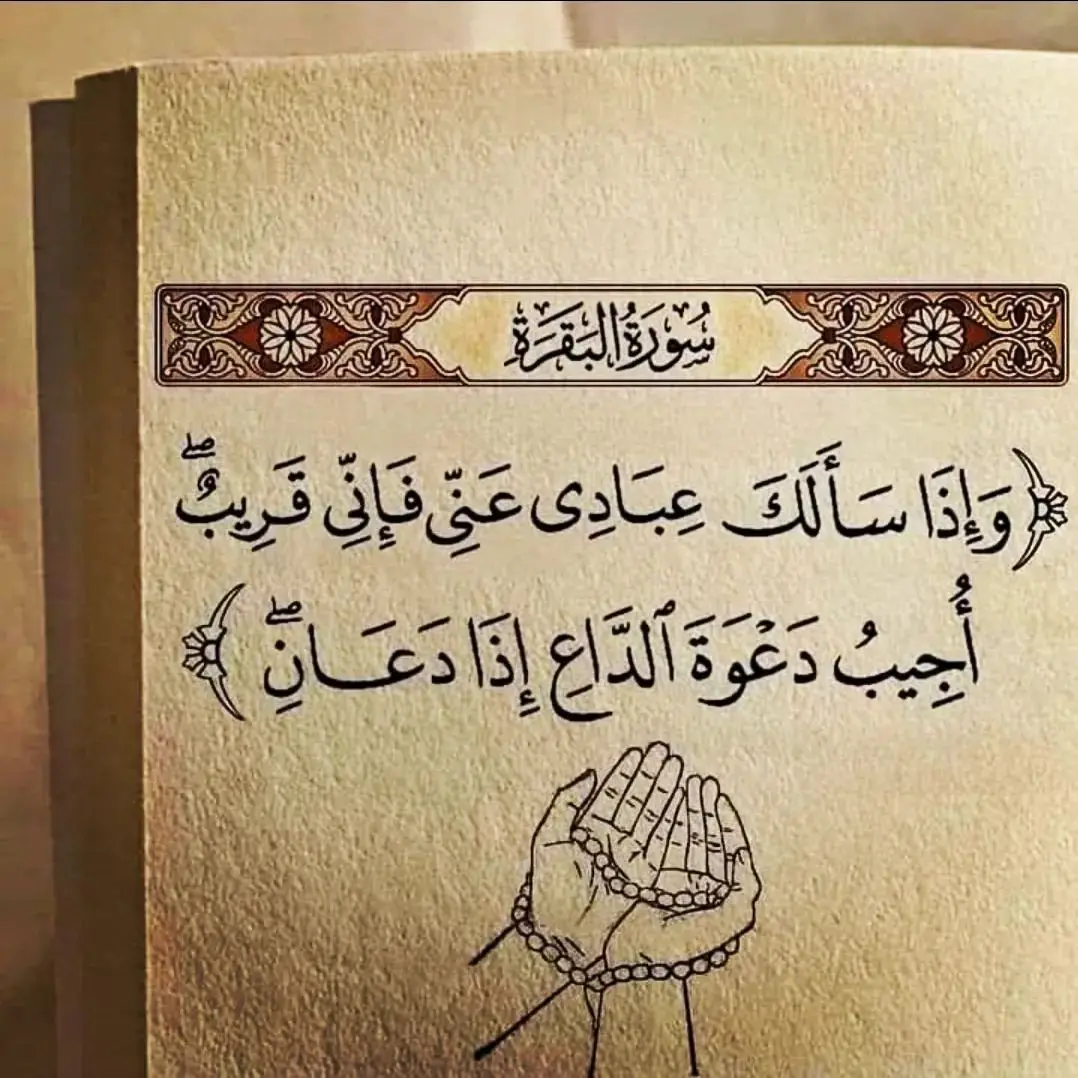 سُورَةُ البَقَرَةِ
﴿ وَإِذَا سَأَلَكَ عِبَادِى عَنِّى فَإِنِّى قَرِيبٌ ۖ
أُجِيبُ دَعْوَةَ ٱلدَّاعِ إِذَا دَعَانِ ۖ ﴾